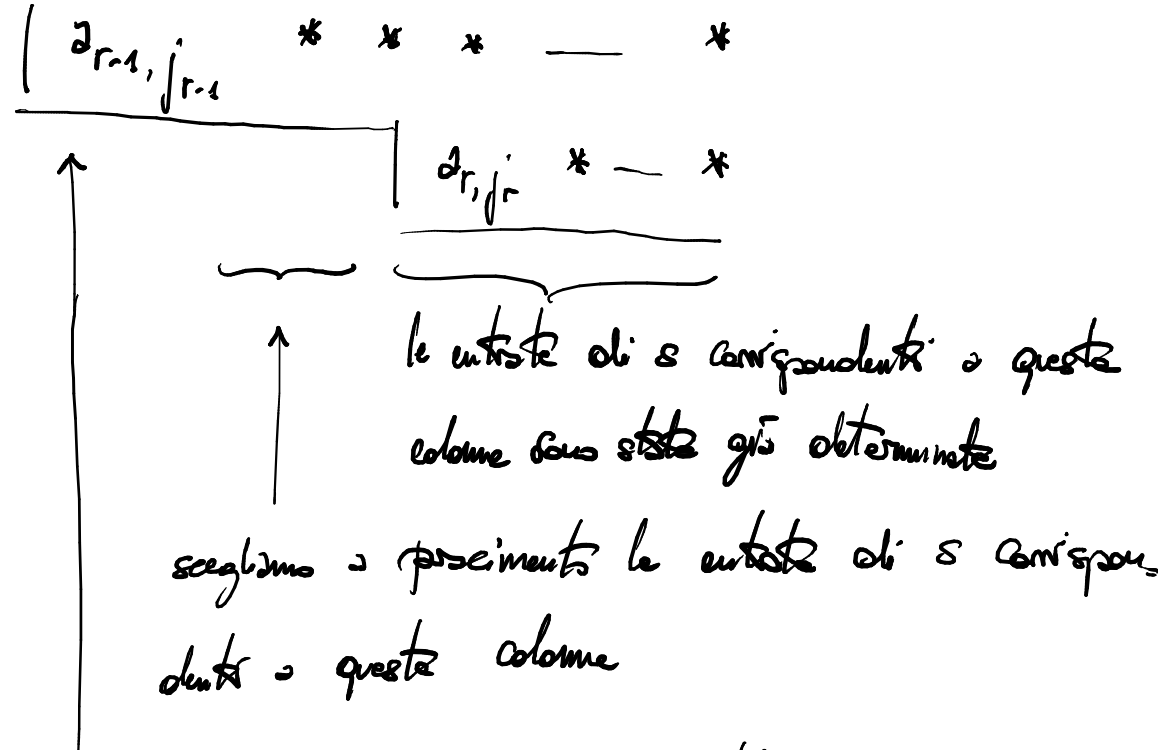 a_{r-1, j_{r-1}} * * * — *
a_{r, j_r} * — *
le entrate di s corrispondenti a queste
colonne sono state già determinate
scegliamo a piacimento le entrate di s corrispon-
denti a queste colonne